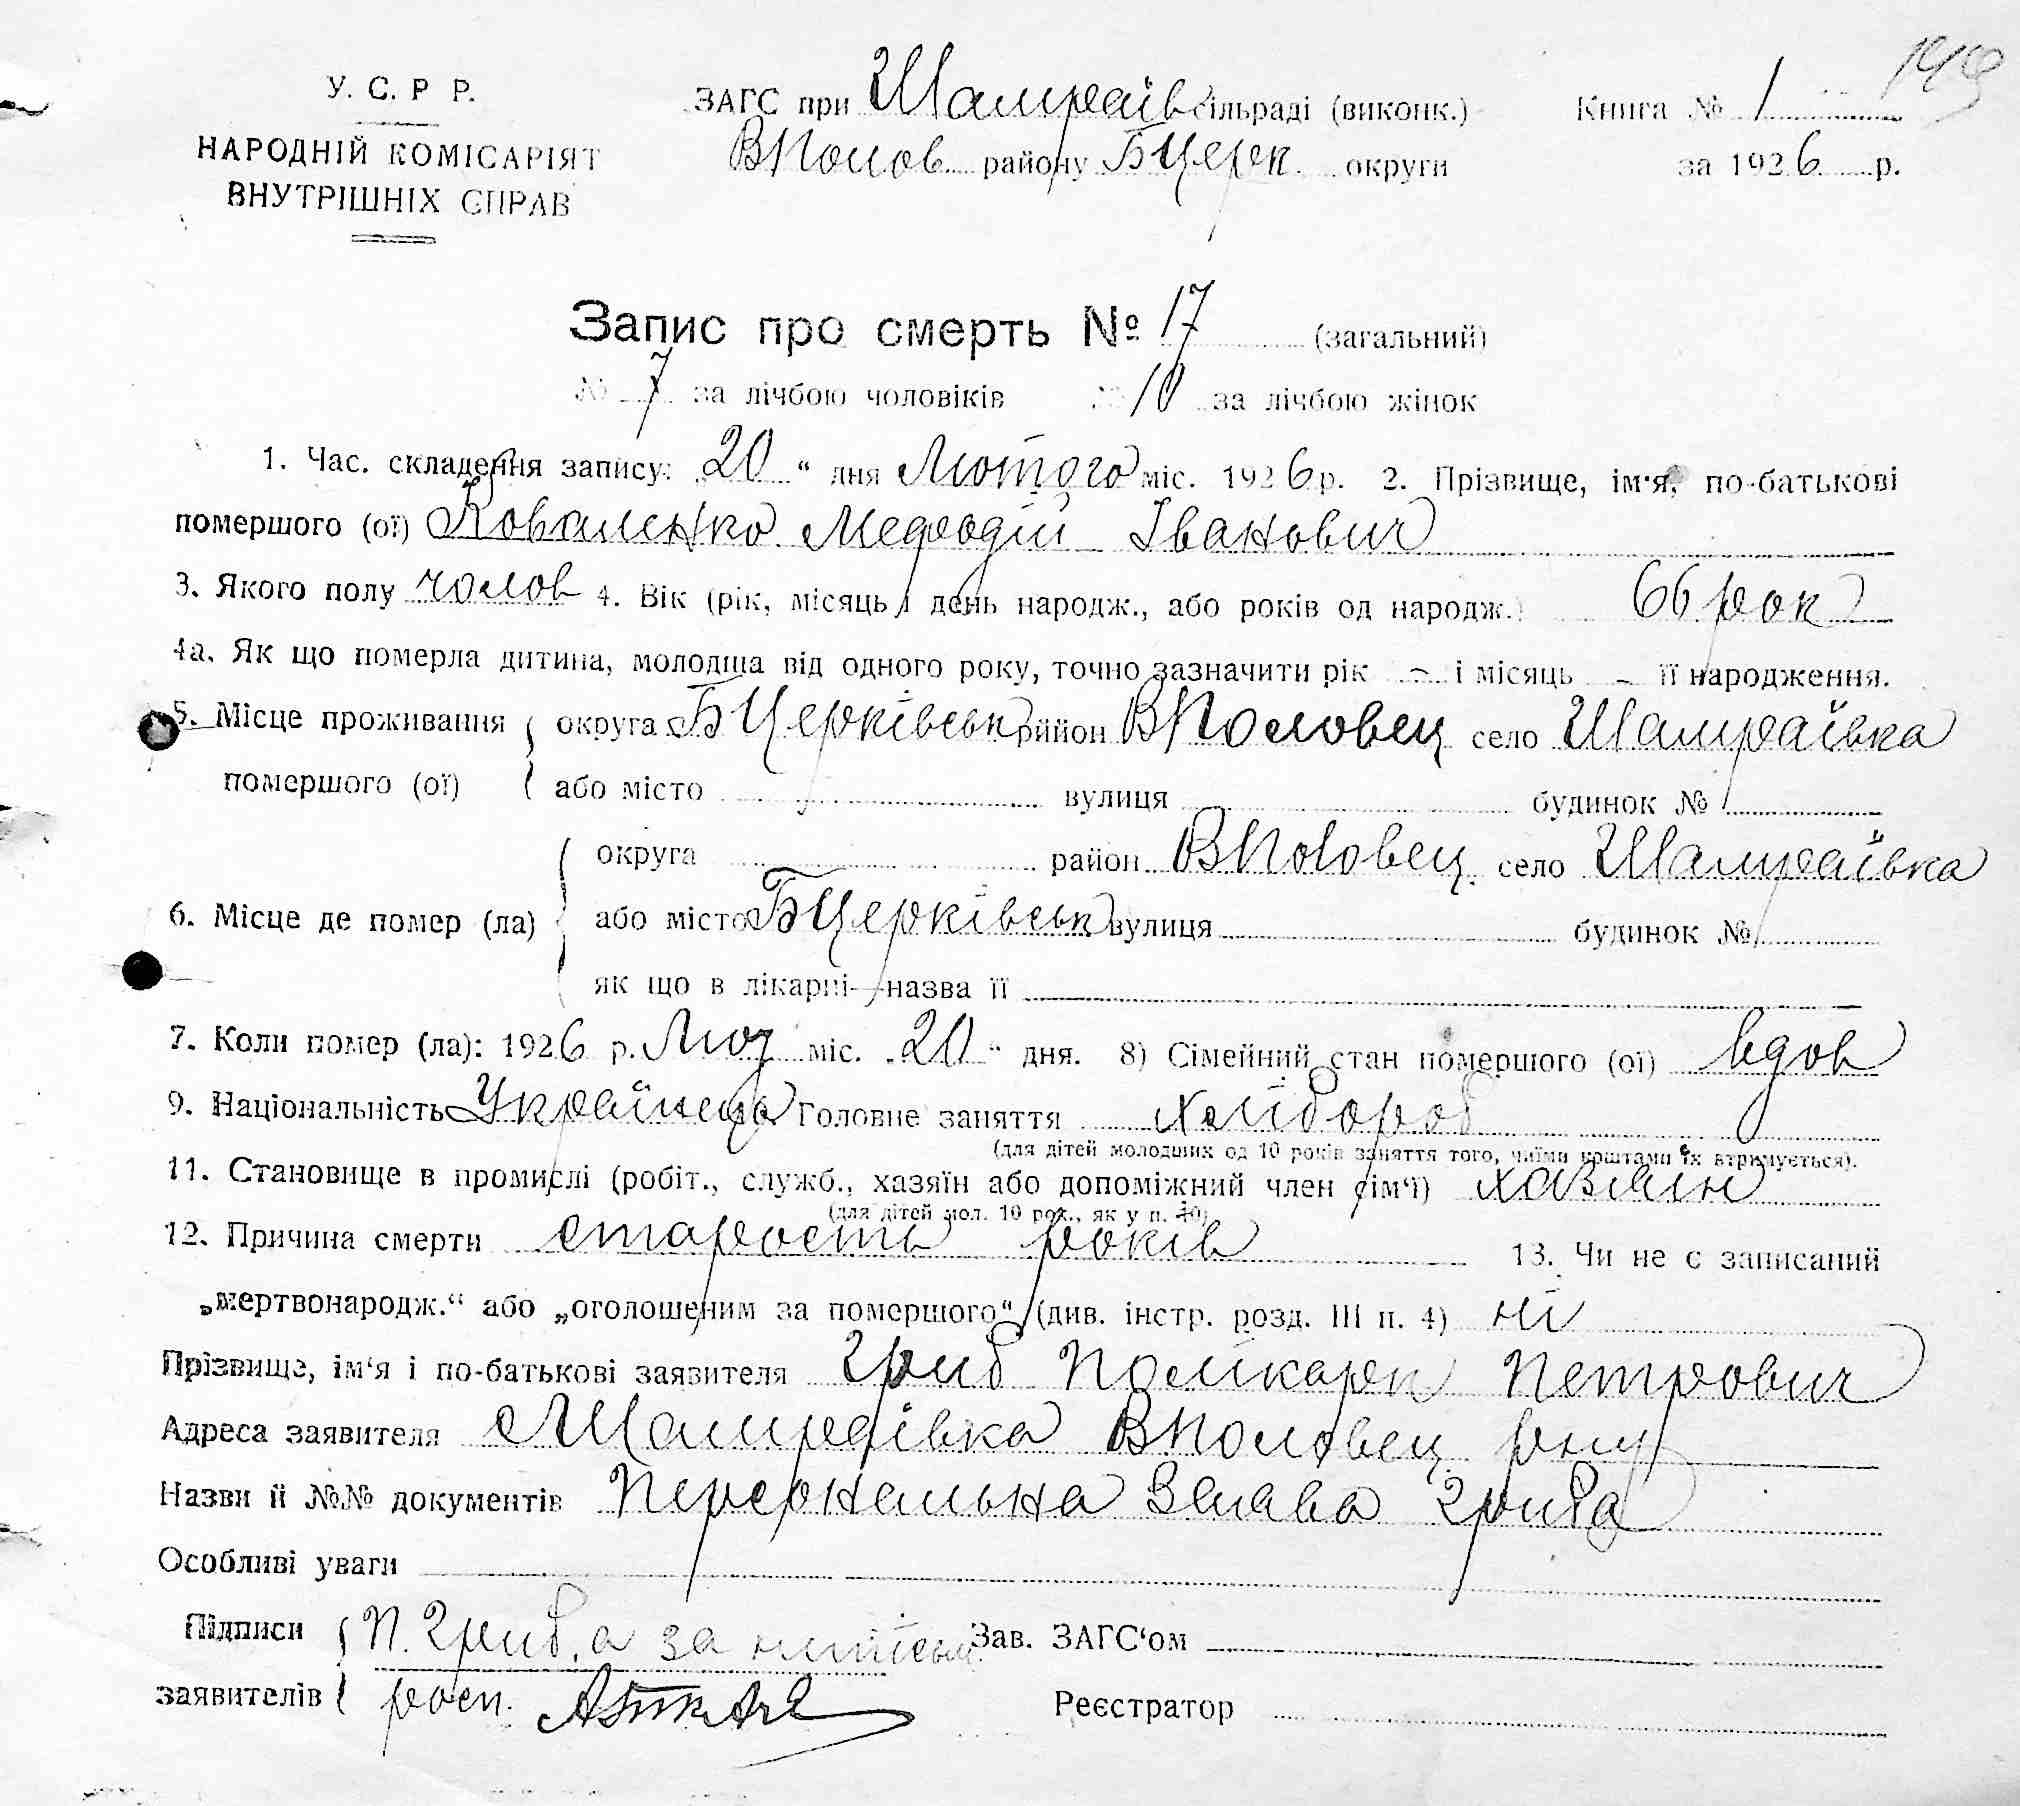 149
У. С. Р Р.
НАРОДНІЙ КОМІСАРІЯТ
ВНУТРІШНІХ СПРАВ
ЗАГС при Шамраїв сільраді (виконк.) Книга № 1
ВПолов району БЦерк округи за 1926 р.
Запис про смерть № 17 (загальний)
№ 7 за лічбою чоловіків № 10 за лічбою жінок
1. Час. складення запису: 20 “ дня Лютого міс. 1926 р. 2. Прізвище, ім'я, по-батькові
помершого (ої) Коваленко Мефодій Іванович
3. Якого полу чолов 4. Вік (рік, місяць і день народж., або років од народж.) 66 рок
4а. Як що померла дитина, молодша від одного року, точно зазначити рік – і місяць – її народження.
5. Місце проживання округа БЦерківськ район ВПоловец село Шамраївка
помершого (ої) або місто вулиця будинок №
округа район ВПоловец село Шамраївка
6. Місце де помер (ла) або місто БЦерківськ вулиця будинок №
як що в лікарні—назва її
7. Коли помер (ла): 1926 р. Лют міс. „20“ дня. 8) Сімейний стан помершого (ої) вдов
9. Національність Українець Головне заняття хлібороб
(для дітей молодших од 10 років заняття того, чиїми коштами їх втримується).
11. Становище в промислі (робіт., служб., хазяїн або допоміжний член сім'ї) хазяїн
(для дітей мол. 10 рок., як у п. 10)
12. Причина смерти старость років 13. Чи не є записаний
„мертвонародж.“ або „оголошеним за помершого“ (див. інстр. розд. III п. 4) ні
Прізвище, ім‘я і по-батькові заявителя Гриб Полікарп Петрович
Адреса заявителя с Шамраївка ВПоловец рну
Назви й №№ документів Персональна Заява Гриба
Особливі уваги
Підписи П. Гриб, а за Зав. ЗАГС‘ом
заявителів росп. Реєстратор